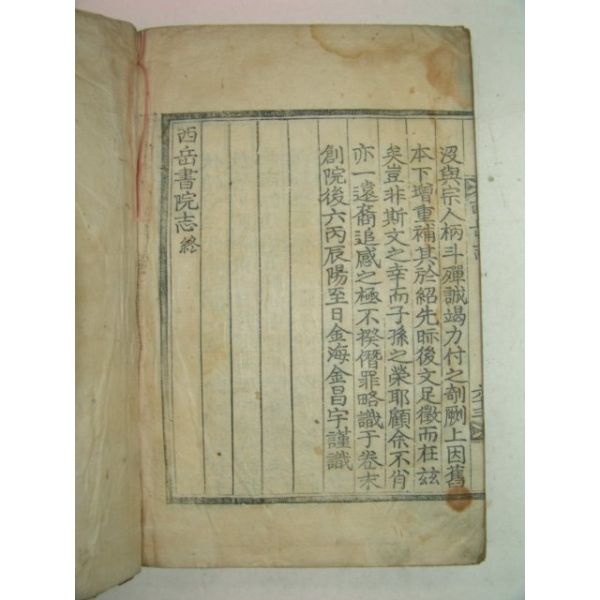 沒與宗人柄斗殫誠竭力付之剞劂上因舊
本下增重補其於紹先眎後文足徵而在玆
矣豈非斯文之幸而子孫之榮耶顧余不肖
亦一遠裔追感之極不揆僭罪略識于卷末
創院後六丙辰陽至日金海金昌宇謹識
西岳書院志 終